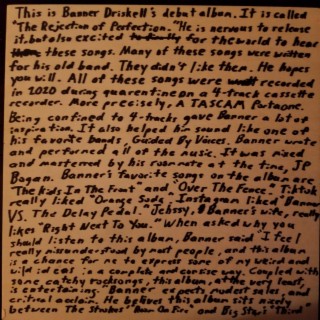 This is Banner Driskell's debut album. It is called
"The Rejection of Perfection." He is nervous to release
it. but also excited for the world to hear
these songs. Many of these songs were written
for his old band. They didn't like them. He hopes
you will. All of these songs were recorded
in 2020 during quarentine on a 4-track cassette
recorder. More precisely, A TASCAM Portaone.
Being confined to 4-tracks gave Banner a lot of
inspiration. It also helped him sound like one of
his favorite bands, Guided By Voices. Banner wrote
and performed all of the music. It was mixed
and mastered by his roommate at the time, JP
Bogan. Banner's favorite songs on the album are
"The Kids In The Front" and "Over The Fence." Tiktok
really liked "Orange Soda". Instagram liked "Banner
VS. The Delay Pedal." Banner's wife, really
likes "Right Next To You." When asked why you
should listen to this album, Banner said "I feel
really misunderstood by most people, and this album
is a chance for me to express some of my weird and
wild ideas in a complete and concise way. Coupled with
some catchy rock songs, this album, at the very least,
is entertaining." Banner expects modest sales, and
critical acclaim. He belives this album sits nicely
between The Strokes' "Room On Fire" and Big Star's "Third"